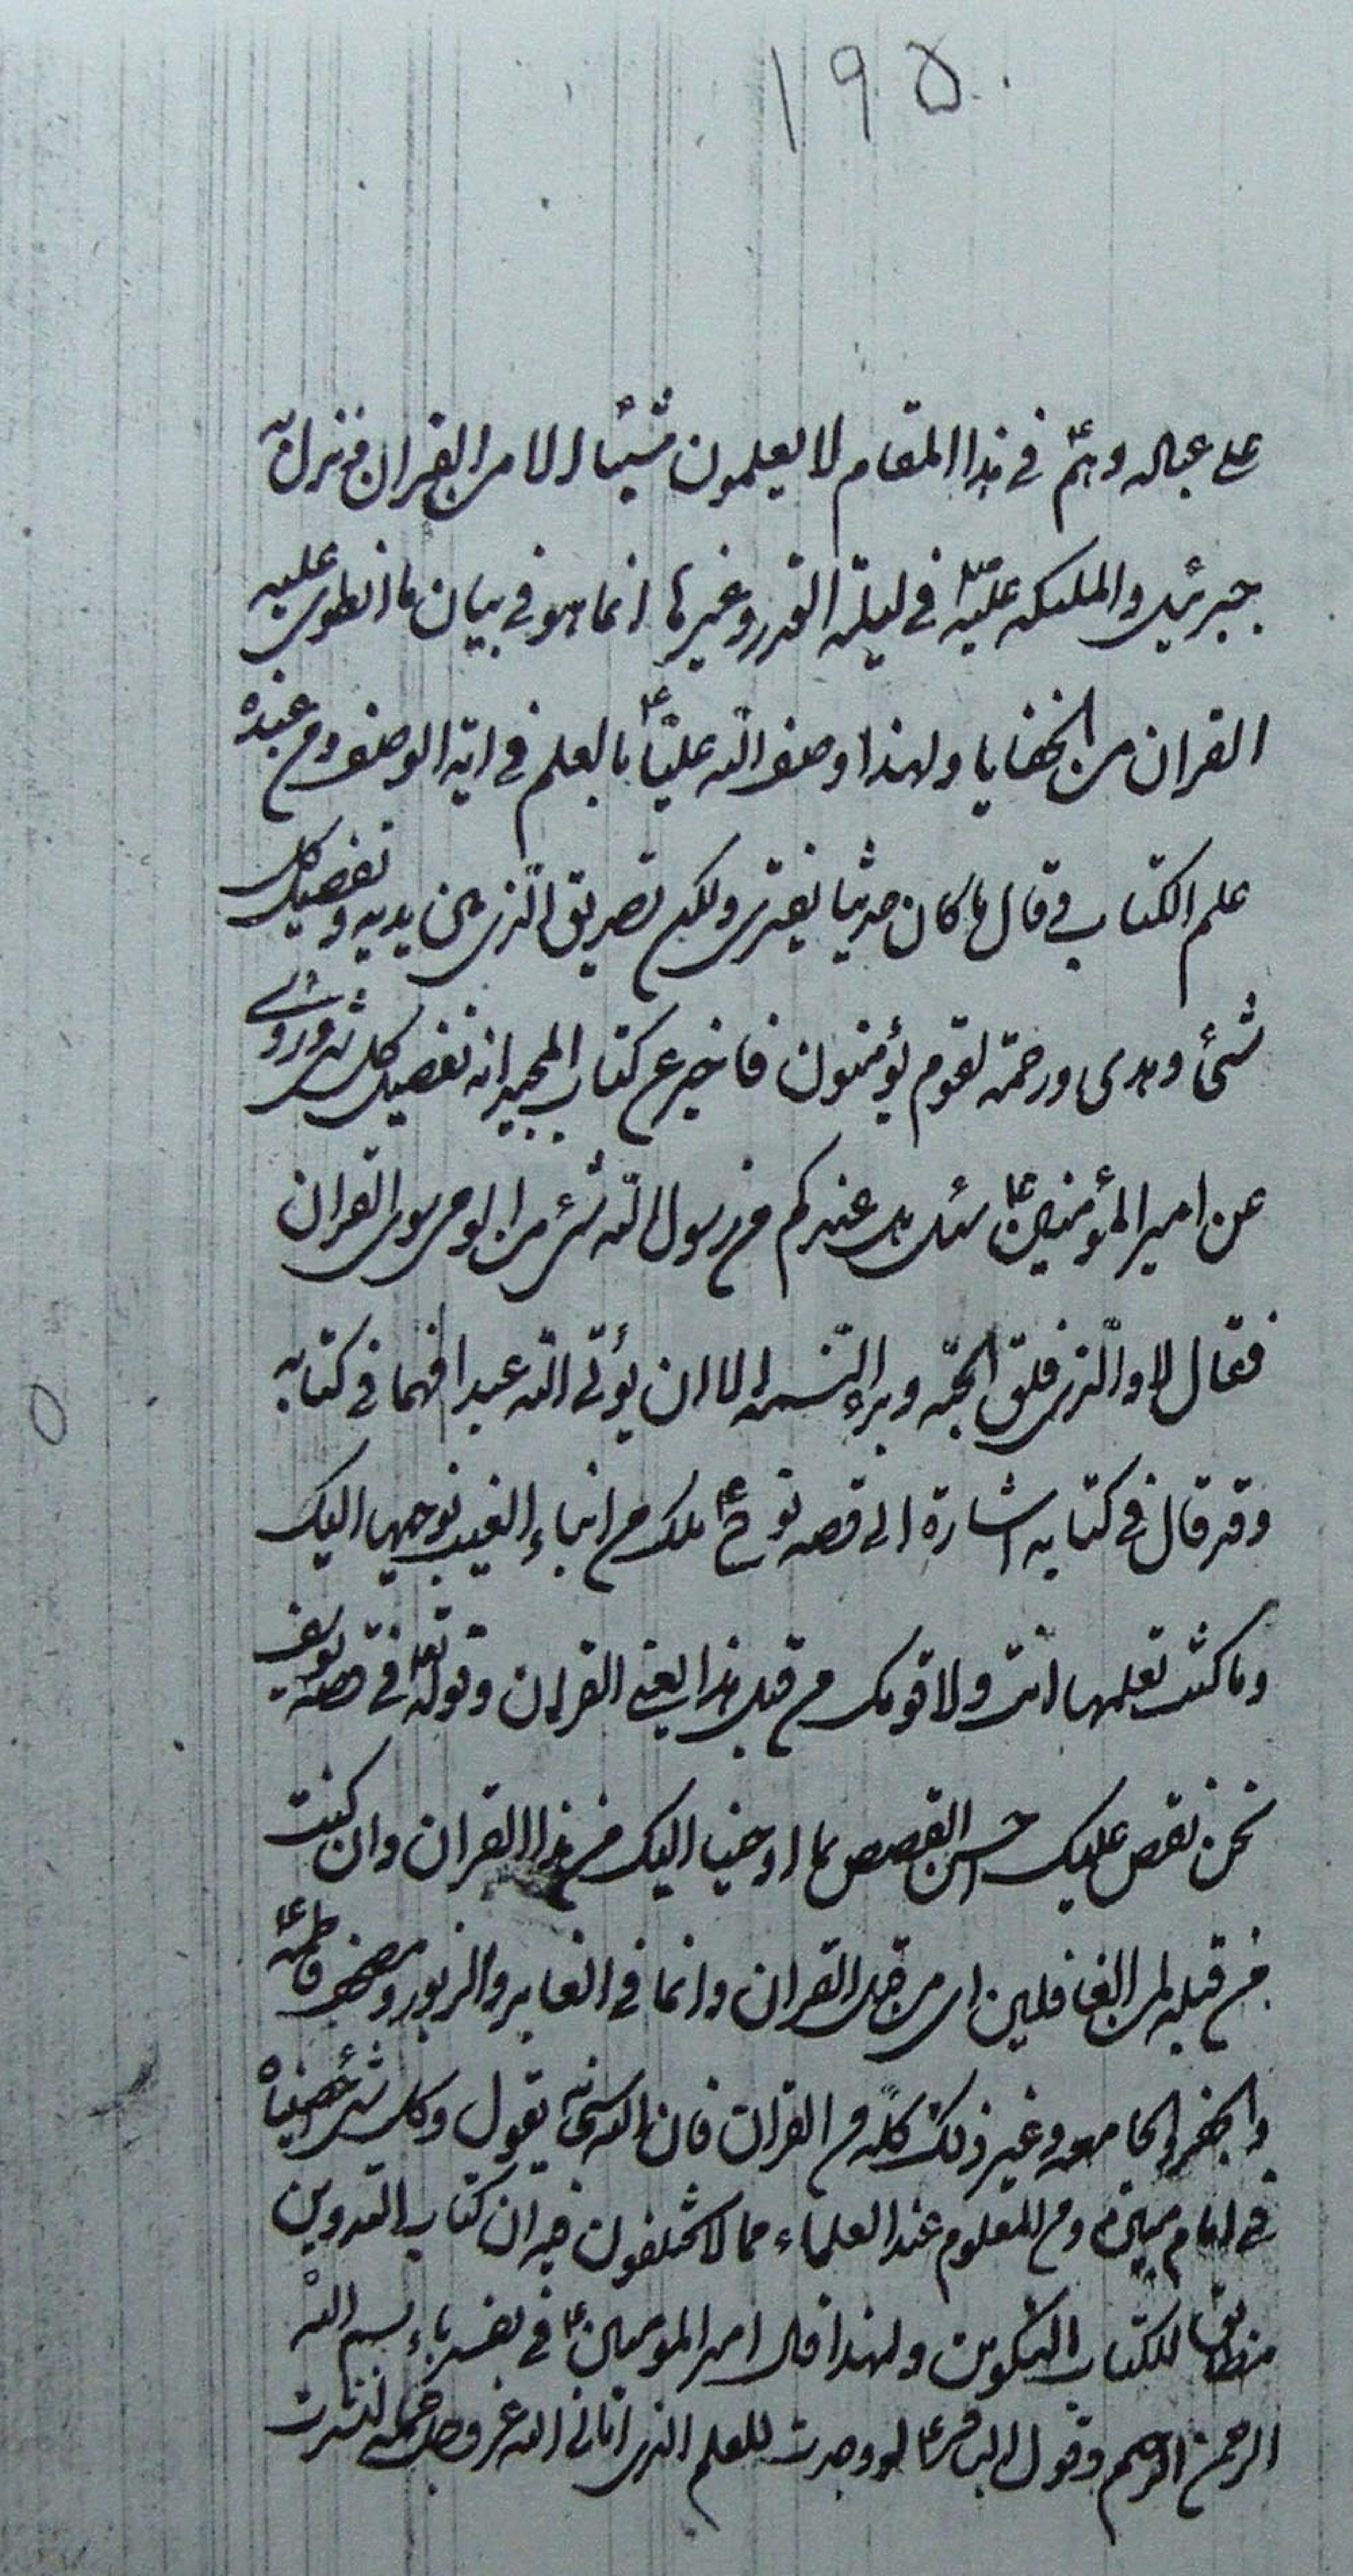 ١٩٥
على عباله وهم ع في هذا المقام لا يعلمون شيئا الا من القران ونزل
جبرئيل والملئكه عليه في ليلة القدر وغيرها انما هو في بيان ما انطوى عليه
القران من الخفايا ولهذا وصف الله عليا ع بالعلم في اية الوصف ومن عنده
علم الكتاب وقال ما كان حديثا يفترى ولكن تصديق الذي بين يديه وتفصيل كل
شئ وهدى ورحمة لقوم يؤمنون فاخبر عن كتاب المجيد انه تفصيل كل شئ وروى
عن امير المؤمنين ع سئل هل عندكم من رسول الله شئ من الوحي سوى القران
فقال لا والذي فلق الحبه وبرء النسمه الا ان يؤتي الله عبدا فهما في كتابه
وقد قال في كتابه اشارة الى قصه نوح ع تلك من انباء الغيب نوحيها اليك
وما كنت تعلمها انت ولا قومك من قبل هذا يعني القران وقوله تع في قصه يوسف
نحن نقص عليك احسن القصص بما اوحينا اليك من هذا القران وان كنت
من قبله لمن الغافلين اى من قبل القران وانما في الغابر والزبور ومصحف فاطمه ع
والجفر والجامعه وغير ذلك كله من القران فان الله سبحانه يقول وكل شئ احصيناه
في امام مبين ومن المعلوم عند العلماء مما لا يختلفون فيه ان كتاب التدوين
مطابق للكتاب التكوين ولهذا قال امير المومنين ع في تفسير باء بسم الله
الرحمن الرحيم وقول الباقر ع لو وجدت للعلم الذي اتاني الله عز وجل حمله لنشرت